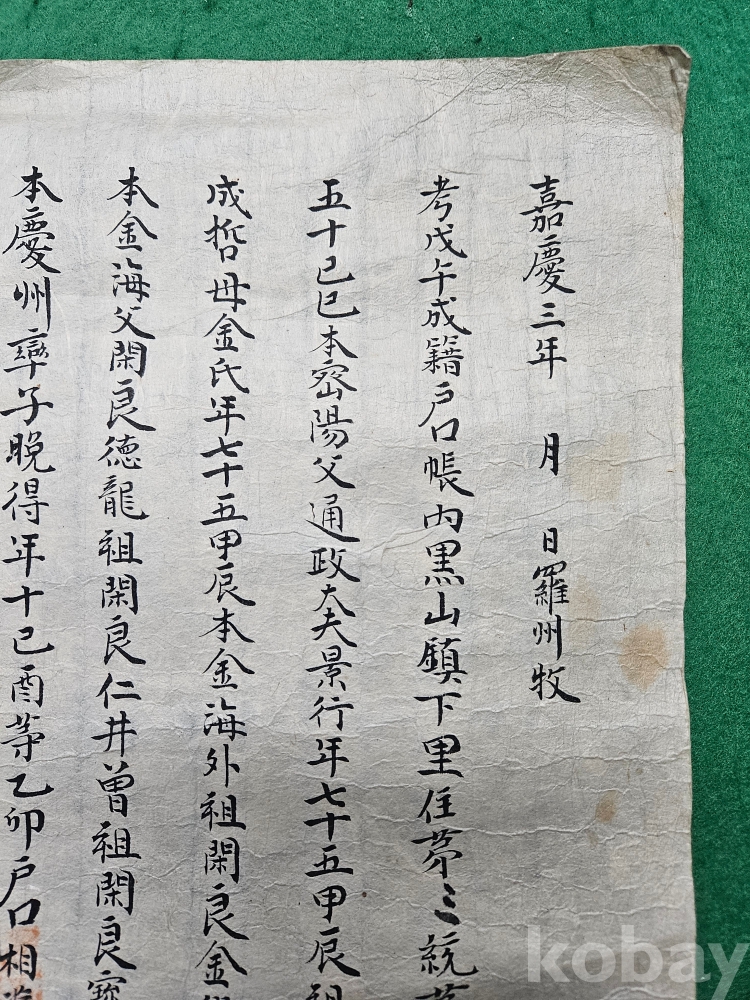 嘉慶三年　月　日羅州牧
考戊午成籍戶口帳內黒山鎭下里住苐三統苐
五十己巳本宻陽父通政大夫景行年七十五甲辰祖
成哲母金氏年七十五甲辰本金海外祖閑良金
本金海父閑良德龍祖閑良仁井曽祖閑良寳
本慶州率子晚得年十己酉等乙卯戶口相凖
kobay